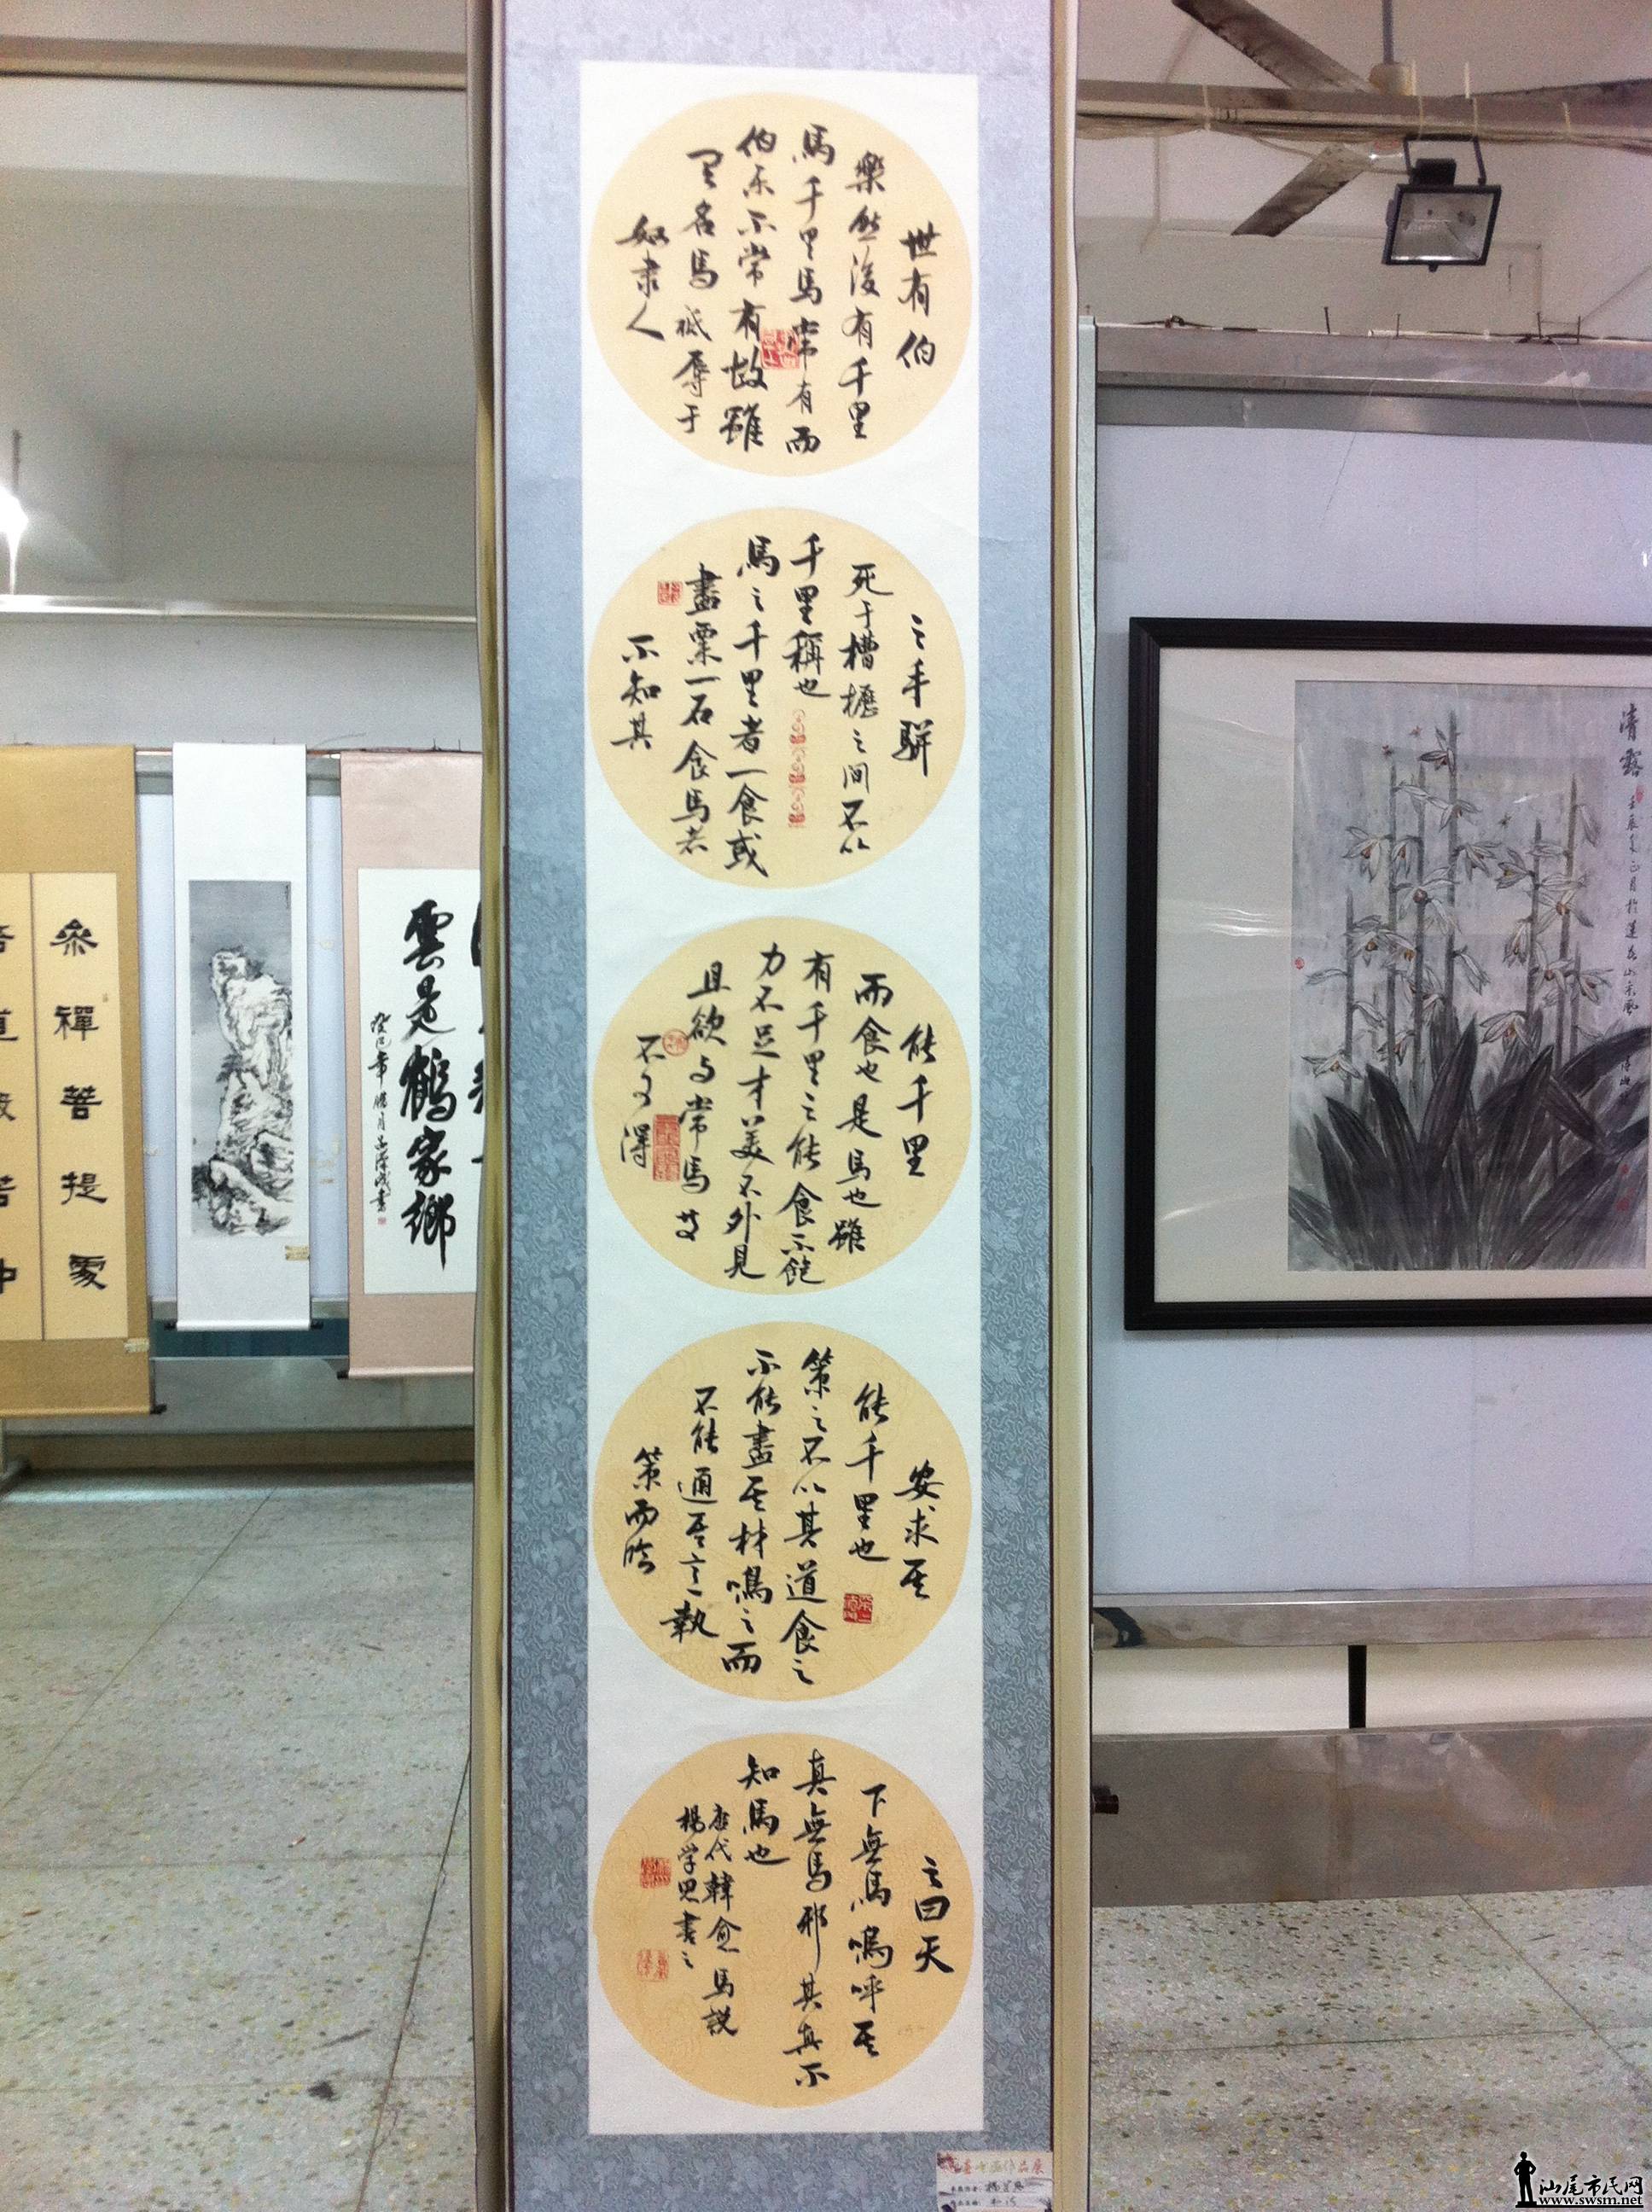 世有伯
樂然後有千里
馬千里馬常有而
伯乐不常有故雖
名馬祗辱于
奴隶人
之手駢
死于槽櫪之間不以
千里稱也
馬之千里者一食或
盡粟一石食馬者
不知其
能千里
而食也是馬也雖
有千里之能食不飽
力不足才美不外見
且欲与常馬等
不可得
安求其
能千里也
策之不以其道食之
不能盡其材鳴之而
不能通其意執
策而临
之曰天
下無馬嗚呼其
真無馬邪其真不
知馬也
唐代韓愈馬説
楊学思書之
清露
雲是鶴家鄉
癸巳年臘月
參禪菩提
汕尾市民网
www.swsm.net